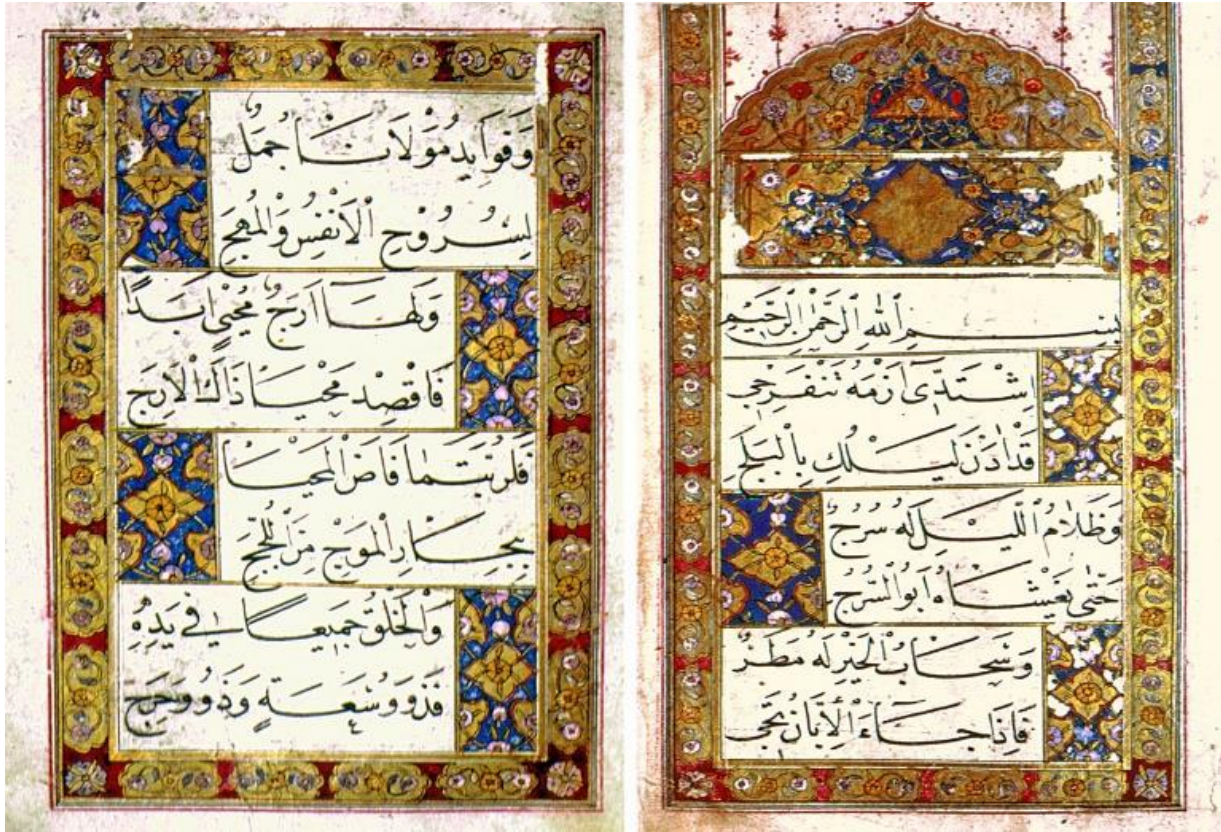 بِسْمِ ٱللهِ ٱلرَّحْمٰنِ ٱلرَّحِيمِ
اِشْتَدِّى اَزْمَةُ تَنْفَرِجِى
قَدْ اٰذَنَ لَيْلُكِ بِالْبَلَجِ
وَظَلَامُ ٱللَّيْلِ لَهُ سُرُجٌ
حَتّٰى يَغْشَاهُ اَبُو السُّرُجِ
وَسَحَابُ الْخَيْرِ لَهُ مَطَرٌ
فَاِذَا جَاءَ الْاِبَّانُ تَجِى
وَفَوَايِدُ مَوْلَانَا جُمَلٌ
لِسُرُوحِ الْاَنْفُسِ وَالْمُهَجِ
وَلَهَا اَرَجٌ مُحْيِى اَبَدًا
فَاقْصِدْ مَحْيَا ذَاكَ الْاَرَجِ
فَلَرُبَّتَمَا فَاضَ الْمَحْيَا
بِبِحَارِ الْمَوْجِ مِنَ اللُّجَجِ
وَالْخَلْقُ جَمِيعًا فِى يَدِهِ
فَذَوُو سَعَةٍ وَذَوُو حَرَجِ